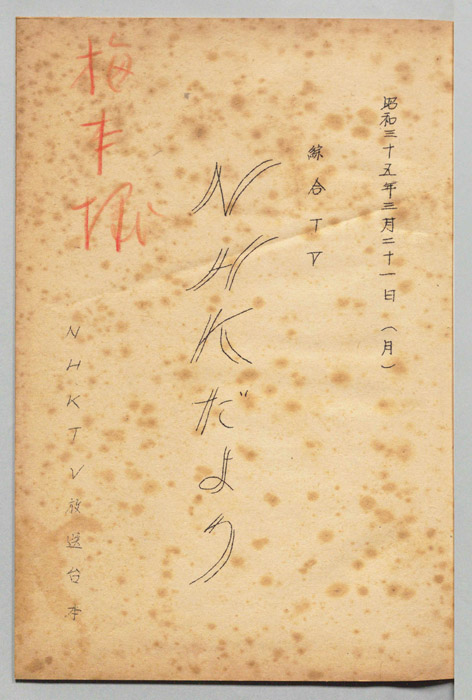 昭和三十五年三月二十一日 （月）
綜合TV
NHKだより
NHKTV放送台本
梅本
堀